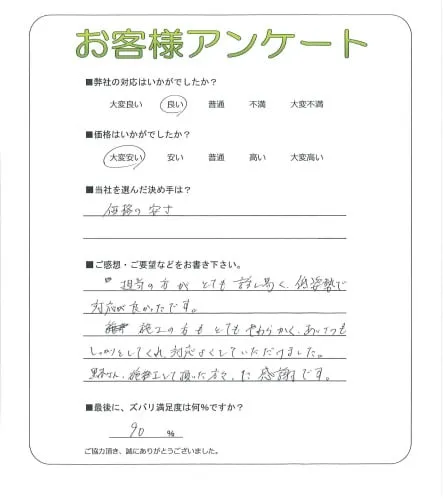 お客様アンケート
■弊社の対応はいかがでしたか？
大変良い 良い 普通 不満 大変不満
■価格はいかがでしたか？
大変安い 安い 普通 高い 大変高い
■当社を選んだ決め手は？
価格の安さ
■ご感想・ご要望などをお書き下さい。
担当の方が とても 話し易く、低姿勢で
対応が良かったです。
施工の方も とても やわらかく、あいさつも
しっかりとしてくれ、対応よくしていただけました。
さん、施工して頂いた方々、 感謝です。
■最後に、ズバリ満足度は何%ですか？
90 %
ご協力頂き、誠にありがとうございました。